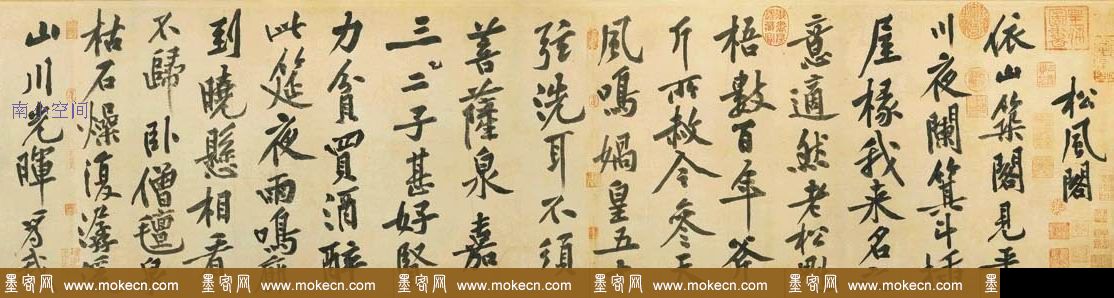 松風閣
依山築閣見平
川夜闌箕斗插
屋椽我来名
意適然老松魁
梧數百年斧
斤所赦今參天
風鳴媧皇五十
弦洗耳不須
菩薩泉嘉
三二子甚好賢
力貧買酒醉
此筵夜雨鳴廊
到曉懸相看
不歸卧僧氈泉
枯石燥復潺湲
山川光暉爲我
南山空间
墨客网 www.mokecn.com 墨客网 www.mokecn.com 墨客网 www.mokecn.com 墨客网 www.mokecn.com 墨客网 www.mokecn.com